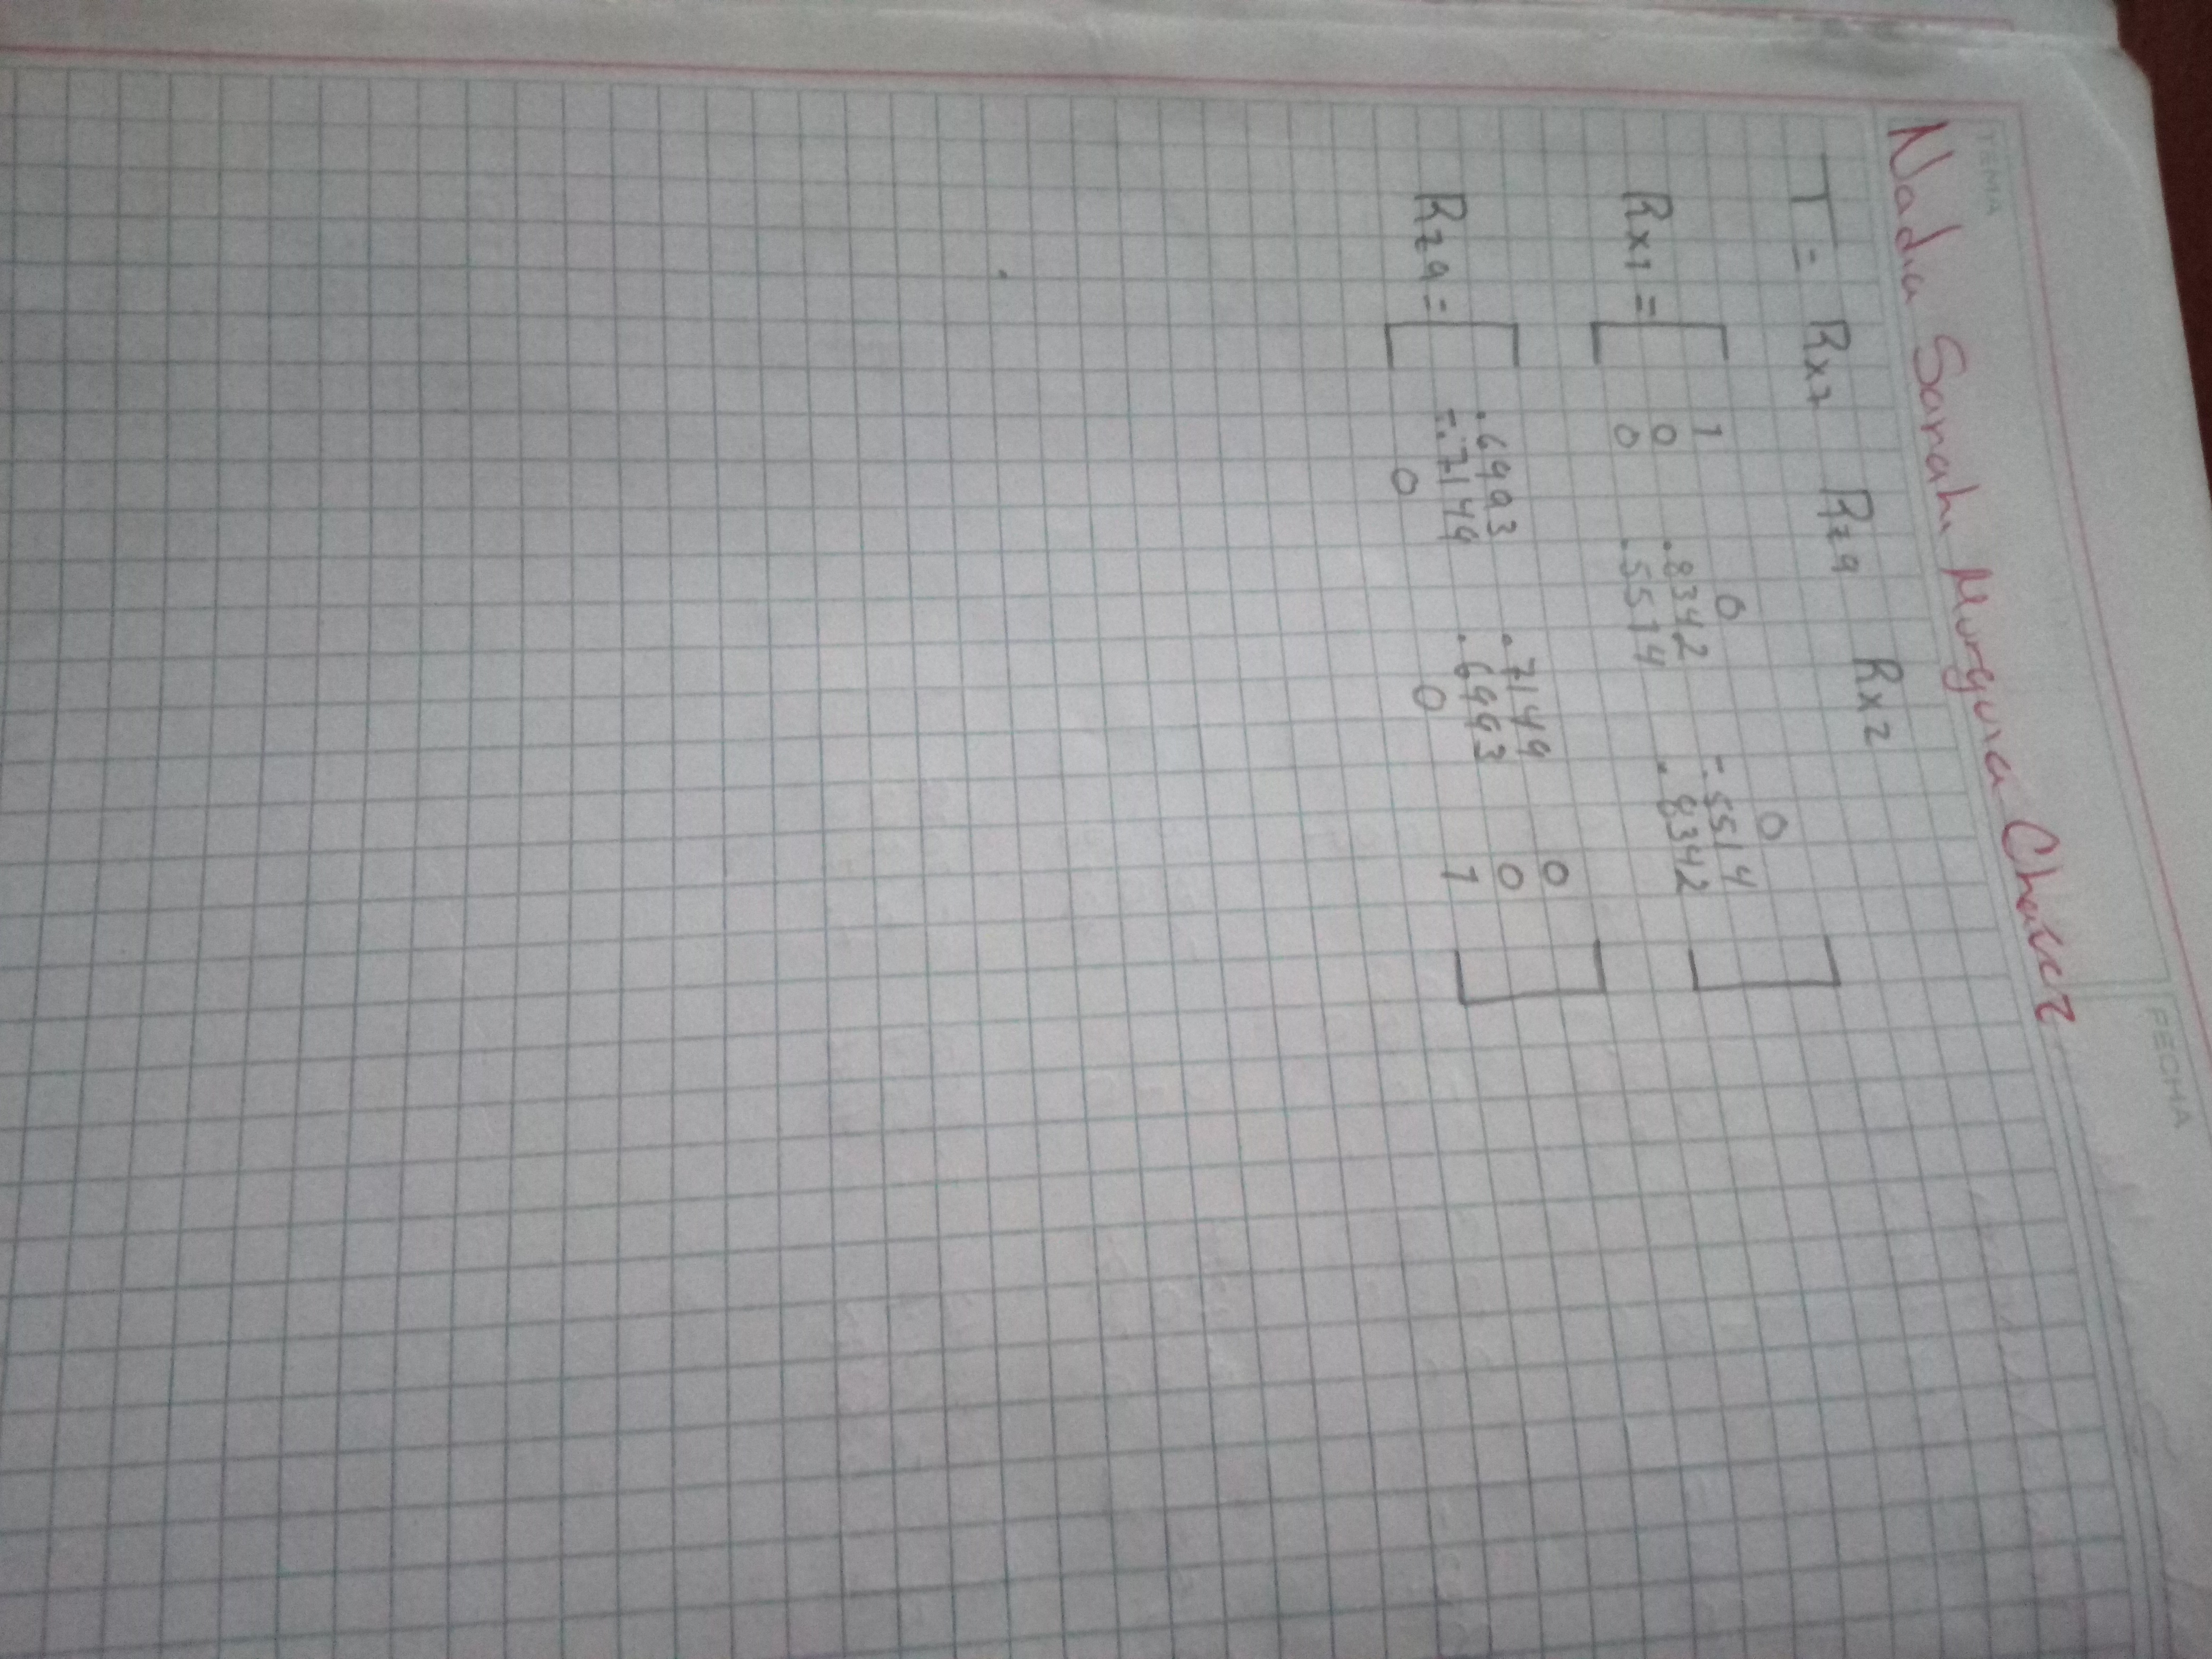 TEMA
FECHA
Nadia Sarahi Murguia Chavez
T = Rx1 Rz9 Rx2
Rx1 = [ 1 0 0
0 .8342 -.5514
0 .5514 .8342 ]
Rz9 = [ .6993 .7149 0
-.7149 .6993 0
0 0 1 ]